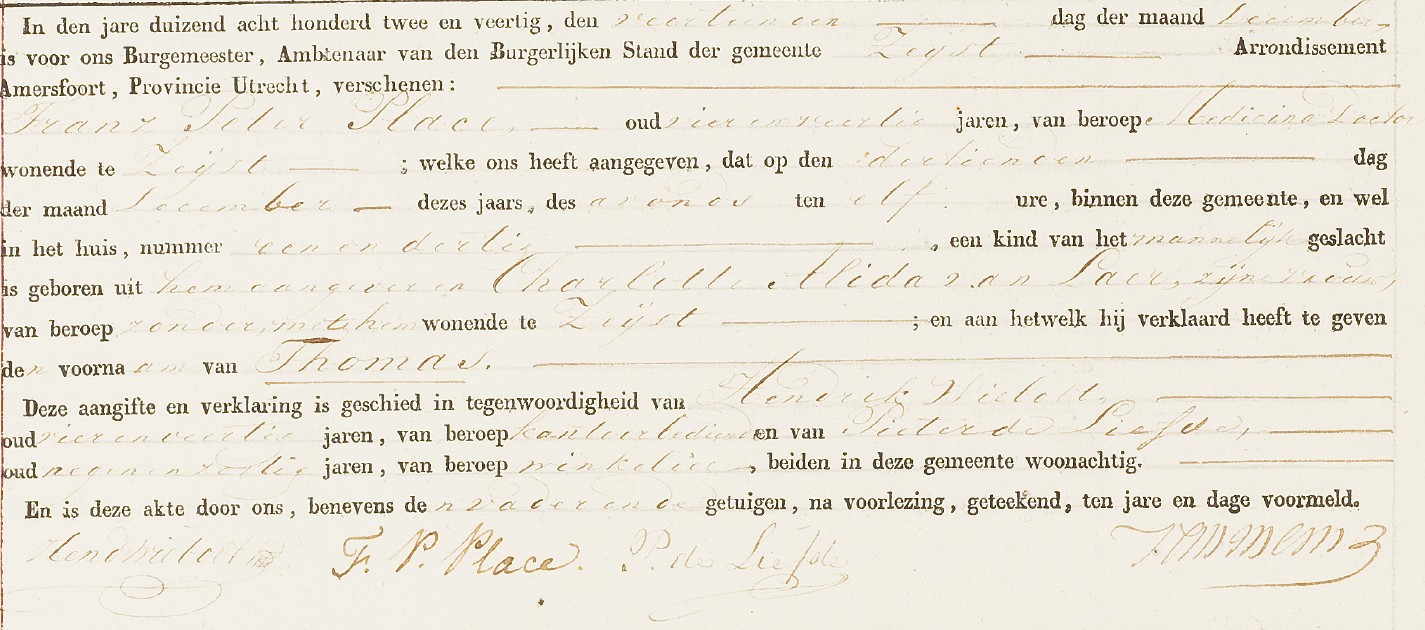 In den jare duizend acht honderd twee en veertig, den veertienden dag der maand December,
is voor ons Burgemeester, Ambtenaar van den Burgerlijken Stand der gemeente Zeijst Arrondissement
Amersfoort, Provincie Utrecht, verschenen:
Franz Peter Place, oud vierenveertig jaren, van beroepe Medicina Doctor
wonende te Zeijst ; welke ons heeft aangegeven, dat op den dertienden dag
der maand December dezes jaars, des avonds ten elf ure, binnen deze gemeente, en wel
in het huis, nummer een en dertig , een kind van het mannelijk geslacht
is geboren uit hem aangever en Charlotte Alida van Laer, zijne vrouw,
van beroep zonder, met hem wonende te Zeijst ; en aan hetwelk hij verklaard heeft te geven
den voornaam van Thomas.
Deze aangifte en verklaring is geschied in tegenwoordigheid van Hendrik
oud vierenveertig jaren, van beroep kantoorbediende en van Pieter de Liefde,
oud negenenzestig jaren, van beroep winkelier, beiden in deze gemeente woonachtig.
En is deze akte door ons, benevens den vader en de getuigen, na voorlezing, geteekend, ten jare en dage voormeld.
F. P. Place. P. de Liefde